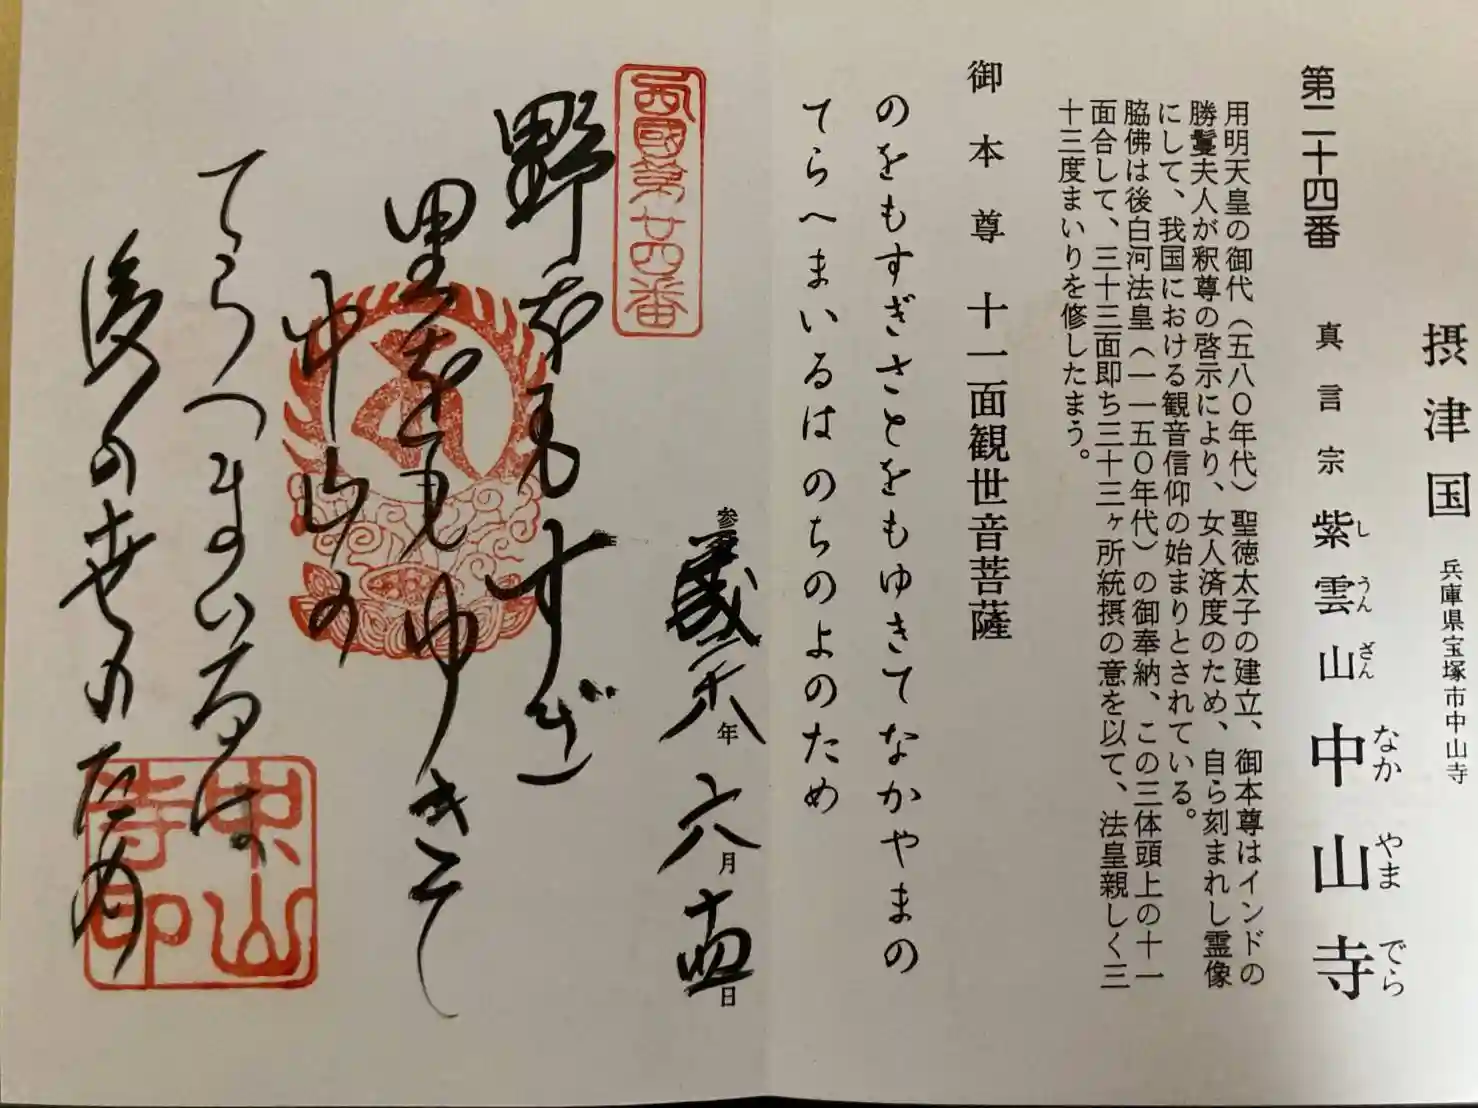 摂津国 兵庫県宝塚市中山寺
第二十四番 真言宗 紫雲山 中山寺
し うん ざん なか やま でら
用明天皇の御代（五八〇年代）聖徳太子の建立、御本尊はインドの
勝鬘夫人が釈尊の啓示により、女人済度のため、自ら刻まれし霊像
にして、我国における観音信仰の始まりとされている。
脇佛は後白河法皇（一一五〇年代）の御奉納、この三体頭上の十一
面合して、三十三面即ち三十三ヶ所統摂の意を以て、法皇親しく三
十三度まいりを修したまう。
御本尊 十一面観世音菩薩
のをもすぎさとをもゆきてなかやまの
てらへまいるはのちのよのため
参 年 六月 十四日
西國第廿四番
野をもすぎ
里をもゆきて
中山の
てらへまいるは
後の世のため
中山寺印